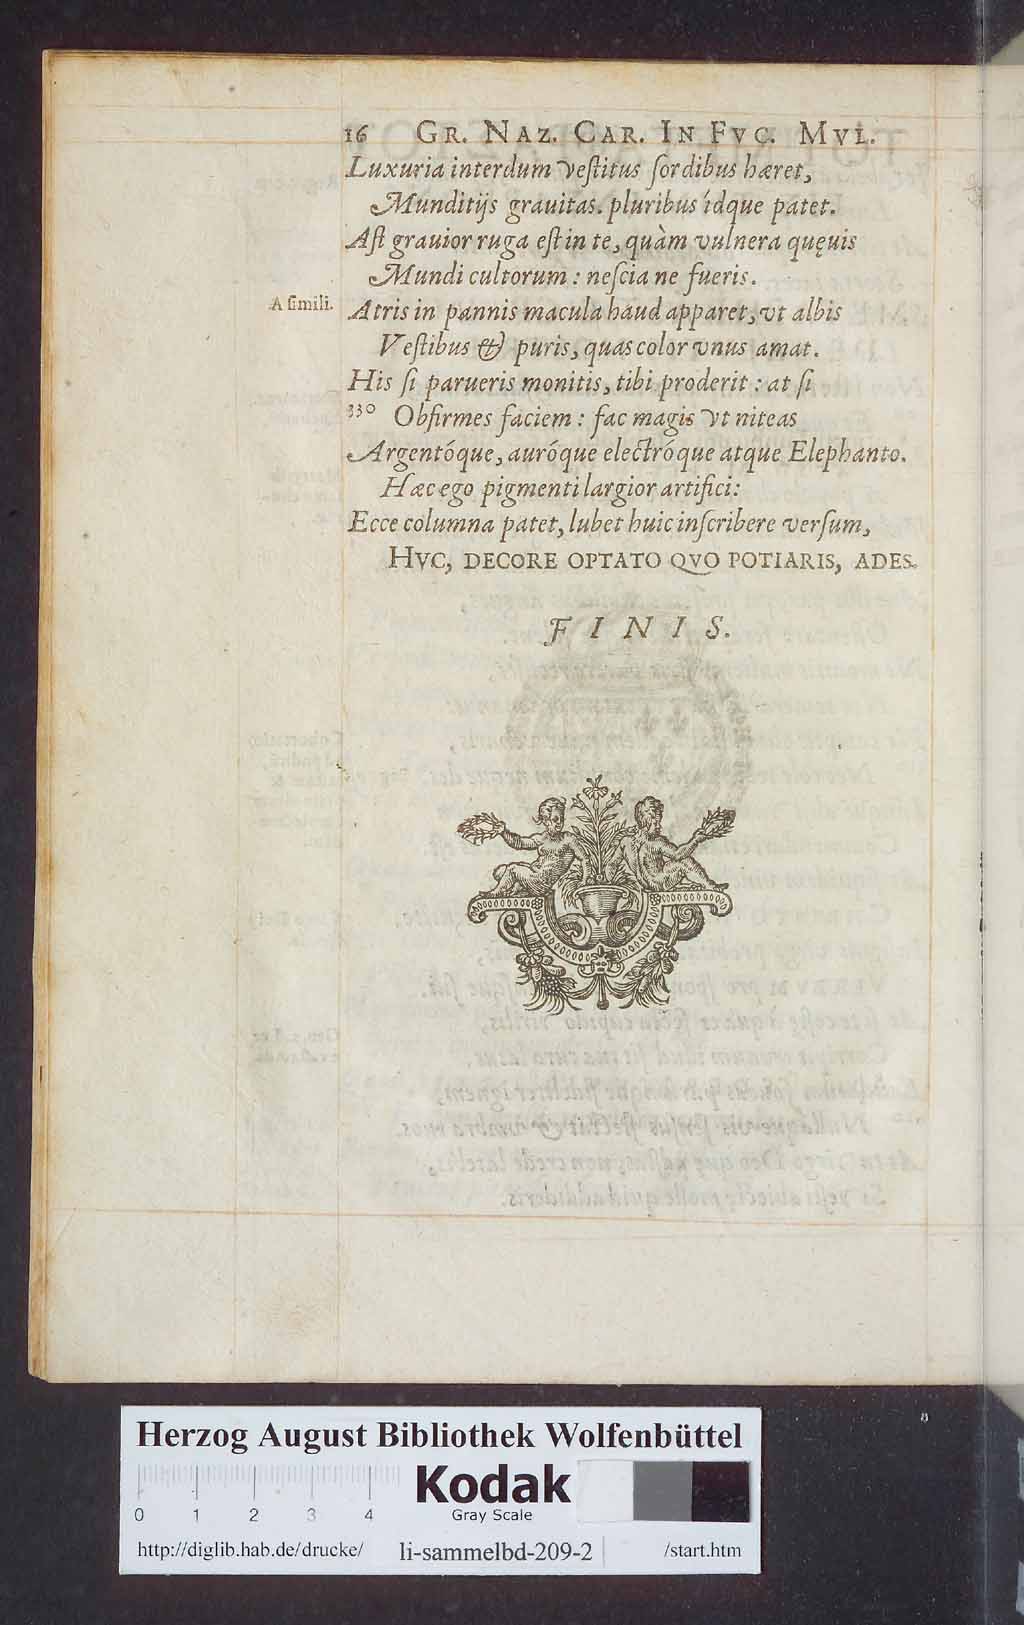 16 GR. NAZ. CAR. IN FVC. MVL.
Luxuria interdum veſtitus ſordibus hæret,
Munditijs grauitas. pluribus ídque patet.
Aſt grauior ruga eſt in te, quàm vulnera quęuis
Mundi cultorum : neſcia ne fueris.
A ſimili.
Atris in pannis macula haud apparet, vt albis
Veſtibus & puris, quas color vnus amat.
His ſi parueris monitis, tibi proderit : at ſi
330 Obfirmes faciem : fac magis vt niteas
Argentóque, auróque electróque atque Elephanto.
Hæc ego pigmenti largior artifici:
Ecce columna patet, lubet huic inſcribere verſum,
HVC, DECORE OPTATO QVO POTIARIS, ADES.
FINIS.
Herzog August Bibliothek Wolfenbüttel
Kodak
0 1 2 3 4 Gray Scale
http://diglib.hab.de/drucke/ li-sammelbd-209-2 /start.htm